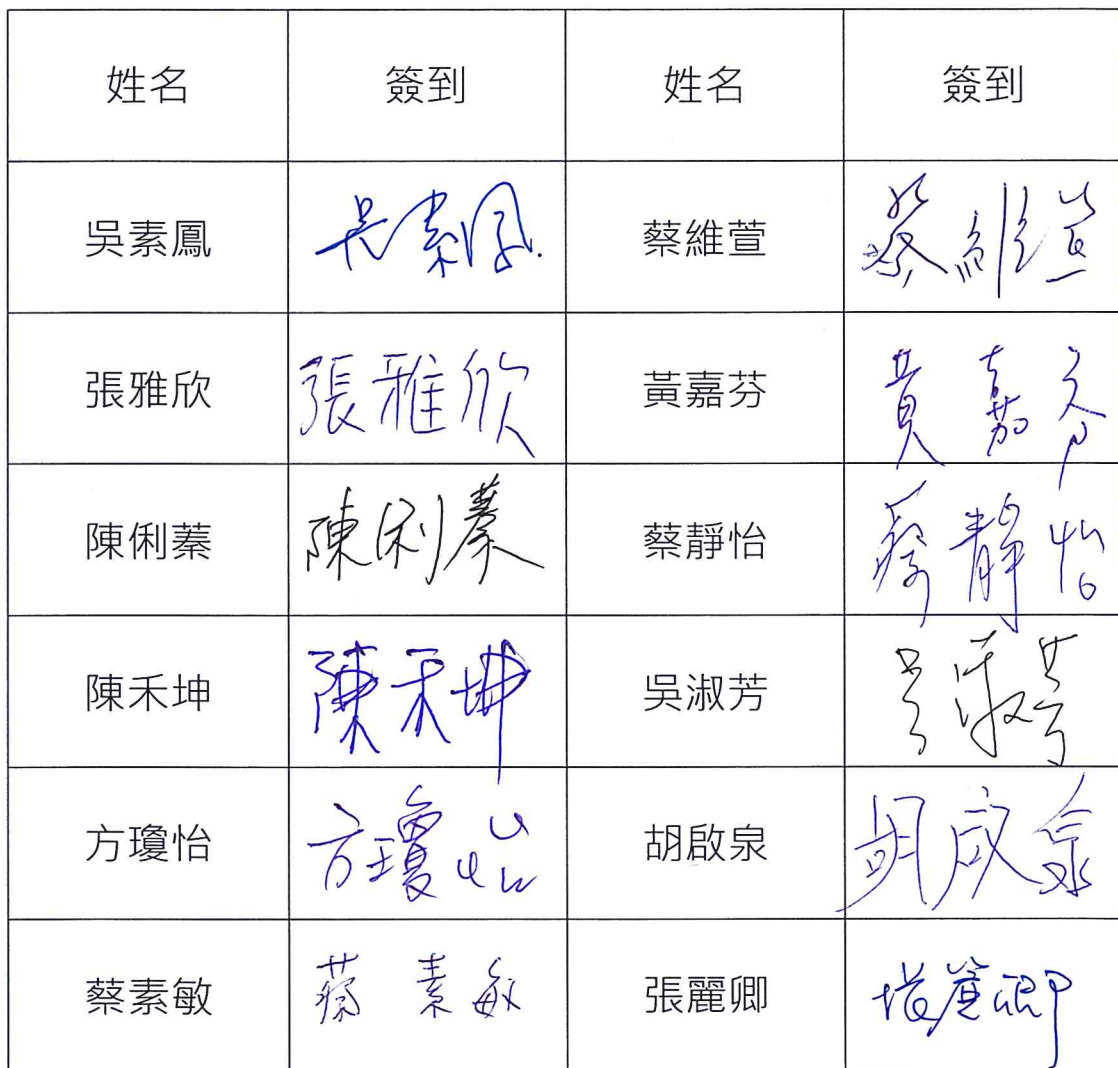 姓名 簽到 姓名 簽到
吳素鳳 吳素鳳 蔡維萱 蔡維萱
張雅欣 張雅欣 黃嘉芬 黃嘉芬
陳俐蓁 陳俐蓁 蔡靜怡 蔡靜怡
陳禾坤 陳禾坤 吳淑芳 吳淑芳
方瓊怡 方瓊怡 胡啟泉 胡啟泉
蔡素敏 蔡素敏 張麗卿 張麗卿